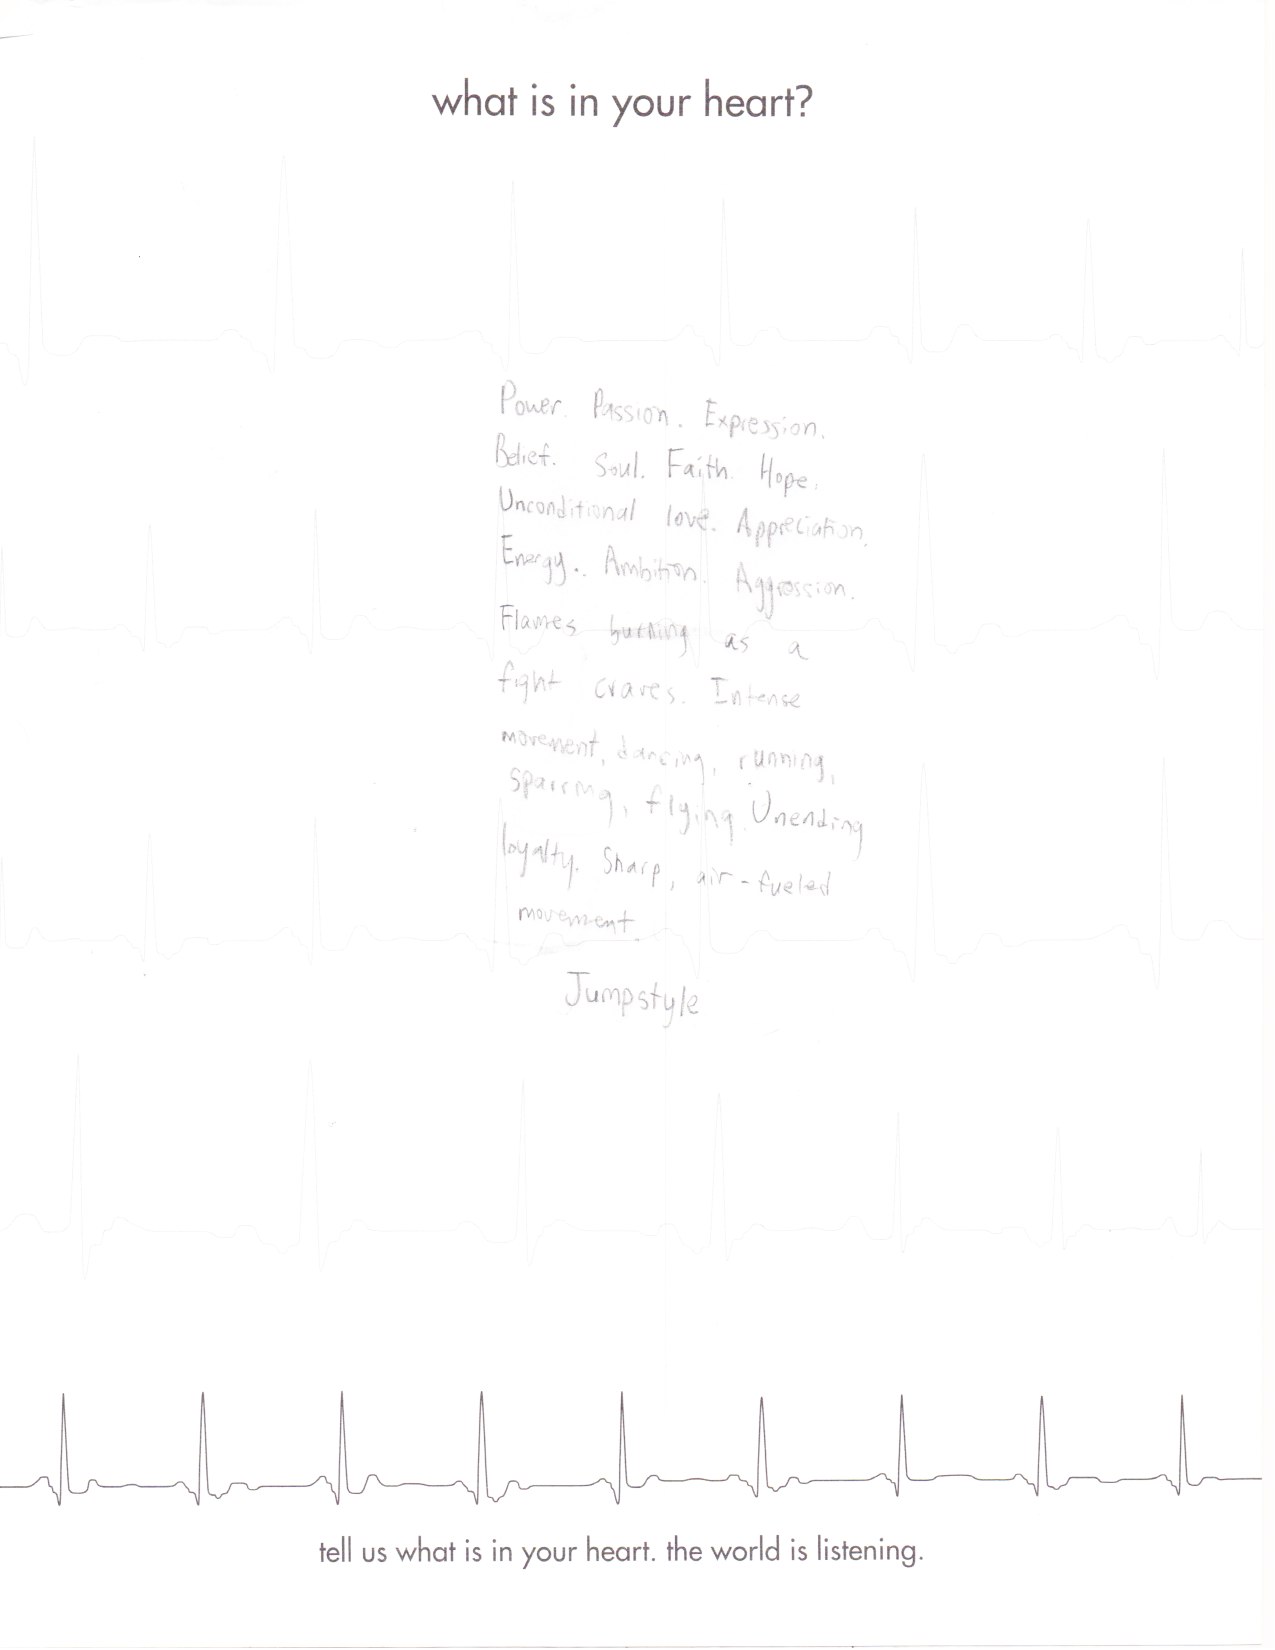 what is in your heart?
Power. Passion. Expression.
Belief. Soul. Faith. Hope.
Unconditional love. Appreciation.
Energy.. Ambition. Aggression.
Flames burning as a
fight craves. Intense
movement, dancing, running,
sparring, flying. Unending
loyalty. Sharp, air-fueled
movement.
Jumpstyle
tell us what is in your heart. the world is listening.